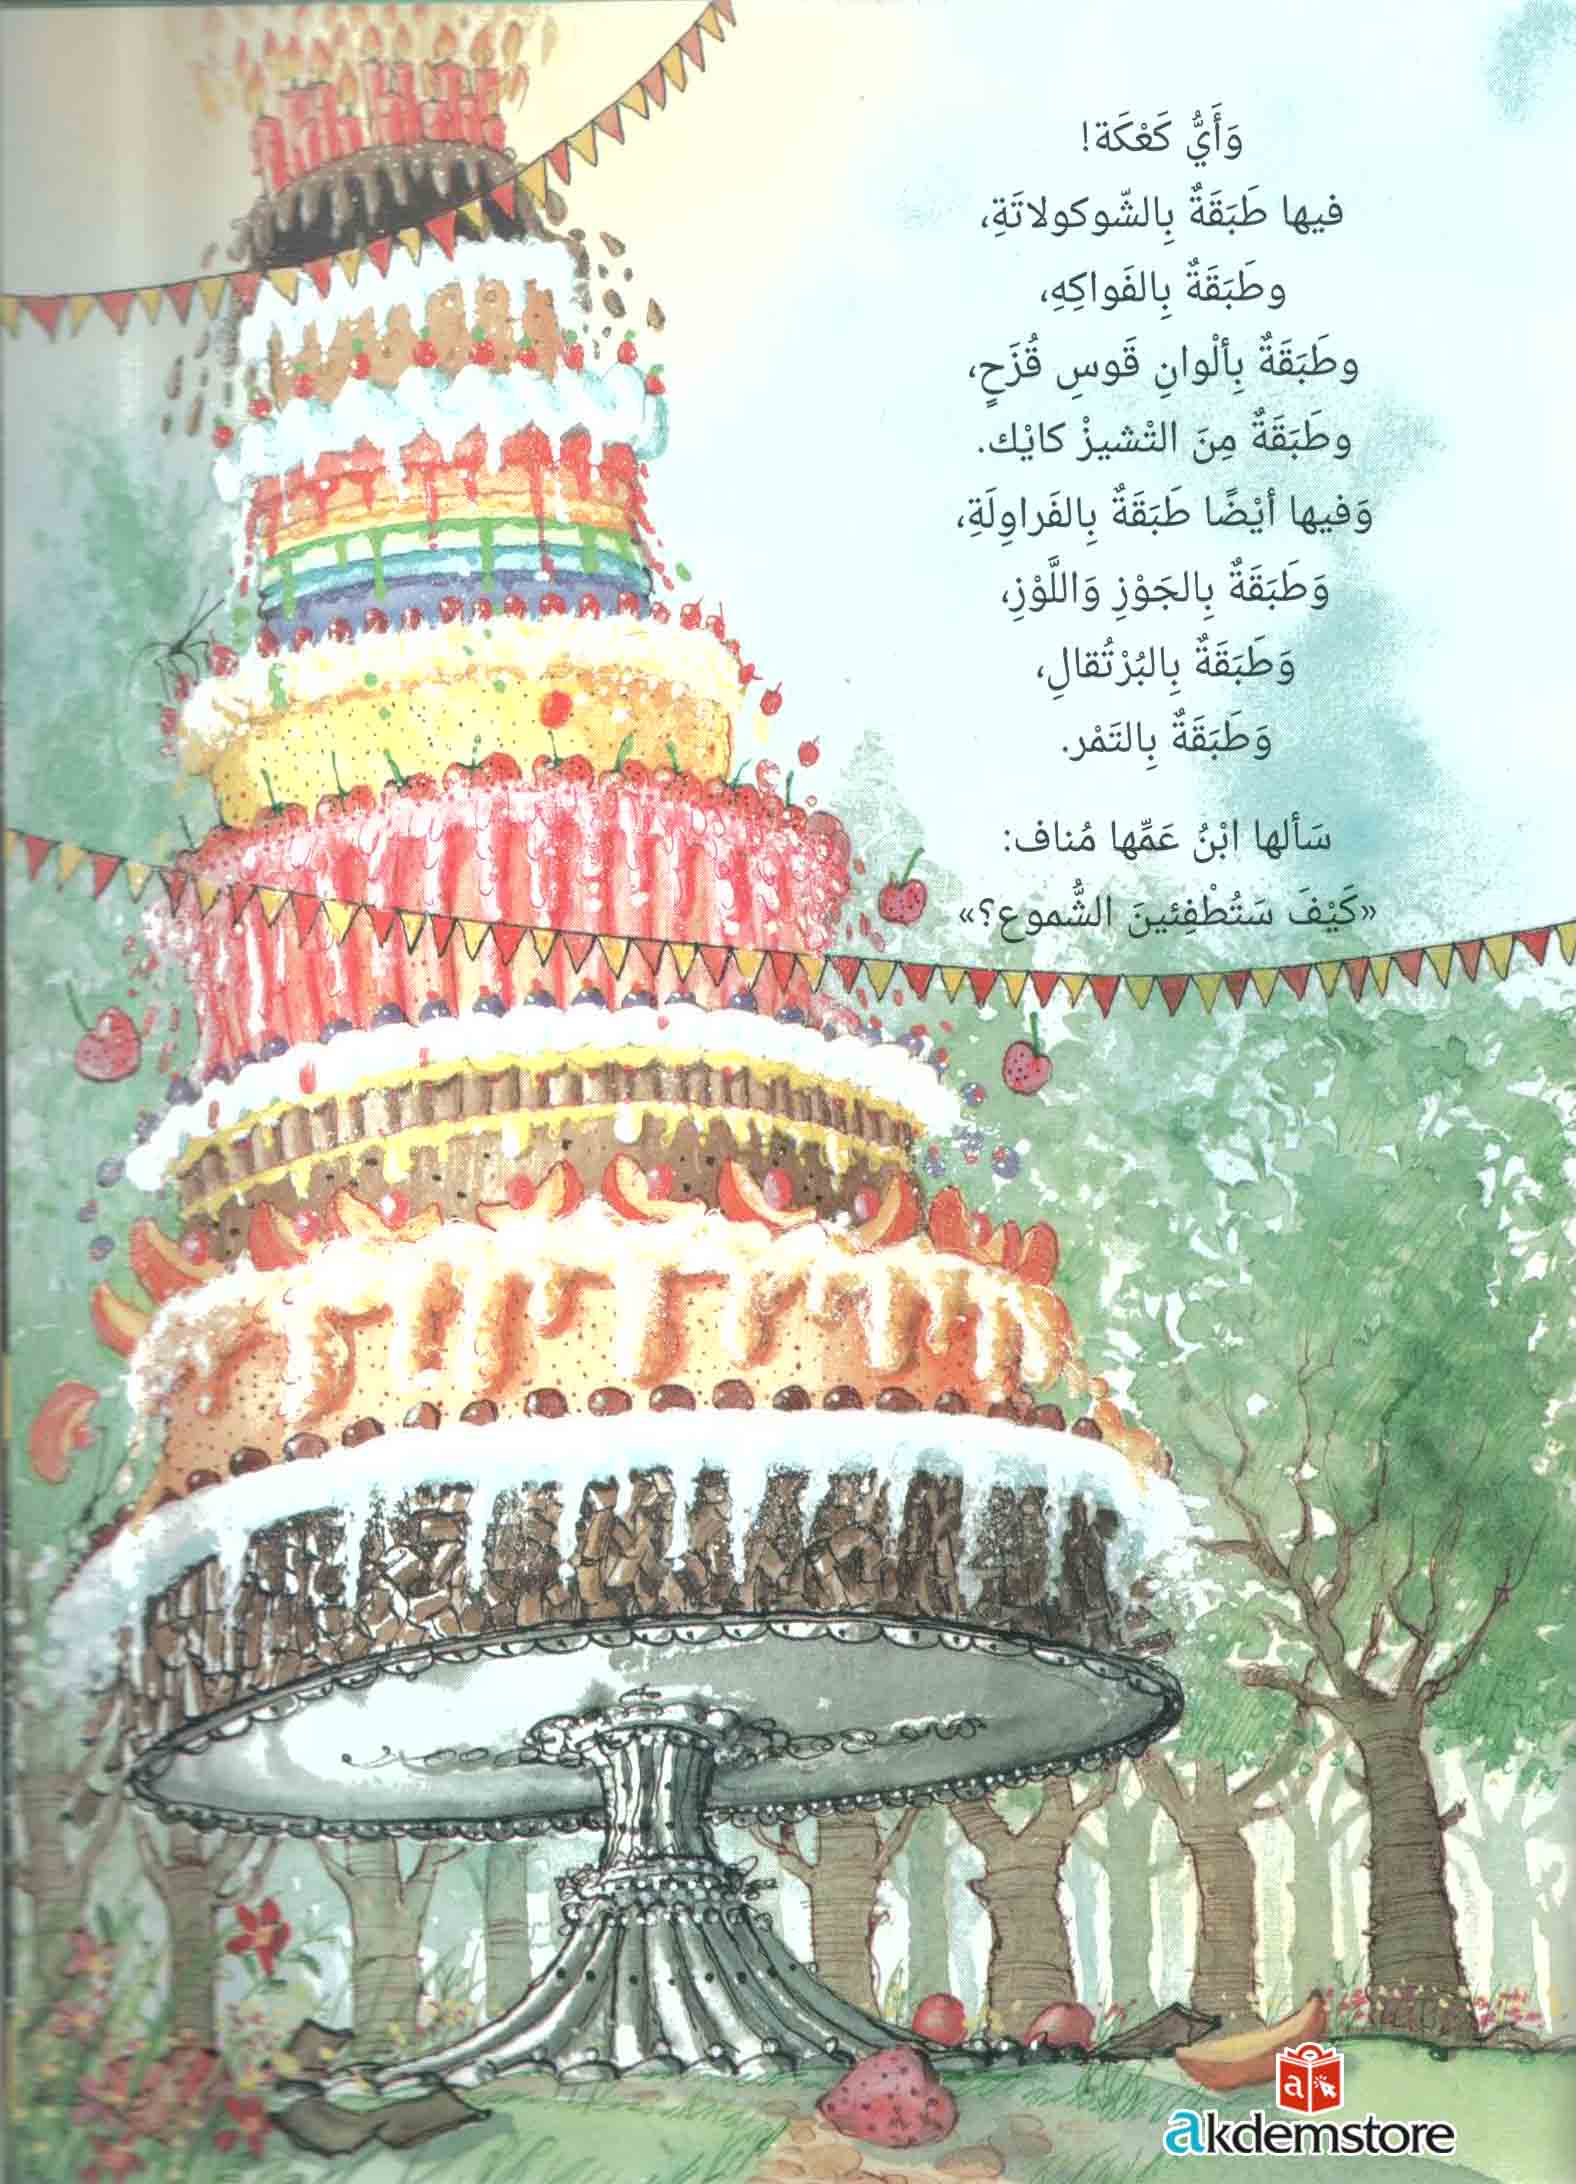 وَأَيُّ كَعْكَة!
فيها طَبَقَةٌ بِالشّوكولاتَةِ،
وطَبَقَةٌ بِالفَواكِهِ،
وطَبَقَةٌ بِألْوانِ قَوسِ قُزَحٍ،
وطَبَقَةٌ مِنَ التْشيزْ كايْك.
وَفيها أيْضًا طَبَقَةٌ بِالفَراوِلَةِ،
وَطَبَقَةٌ بِالجَوْزِ وَاللَّوْزِ،
وَطَبَقَةٌ بِالبُرْتُقالِ،
وَطَبَقَةٌ بِالتَمْر.
سَألها ابْنُ عَمِّها مُناف:
«كَيْفَ سَتُطْفِئينَ الشُّموع؟»
a
akdemstore